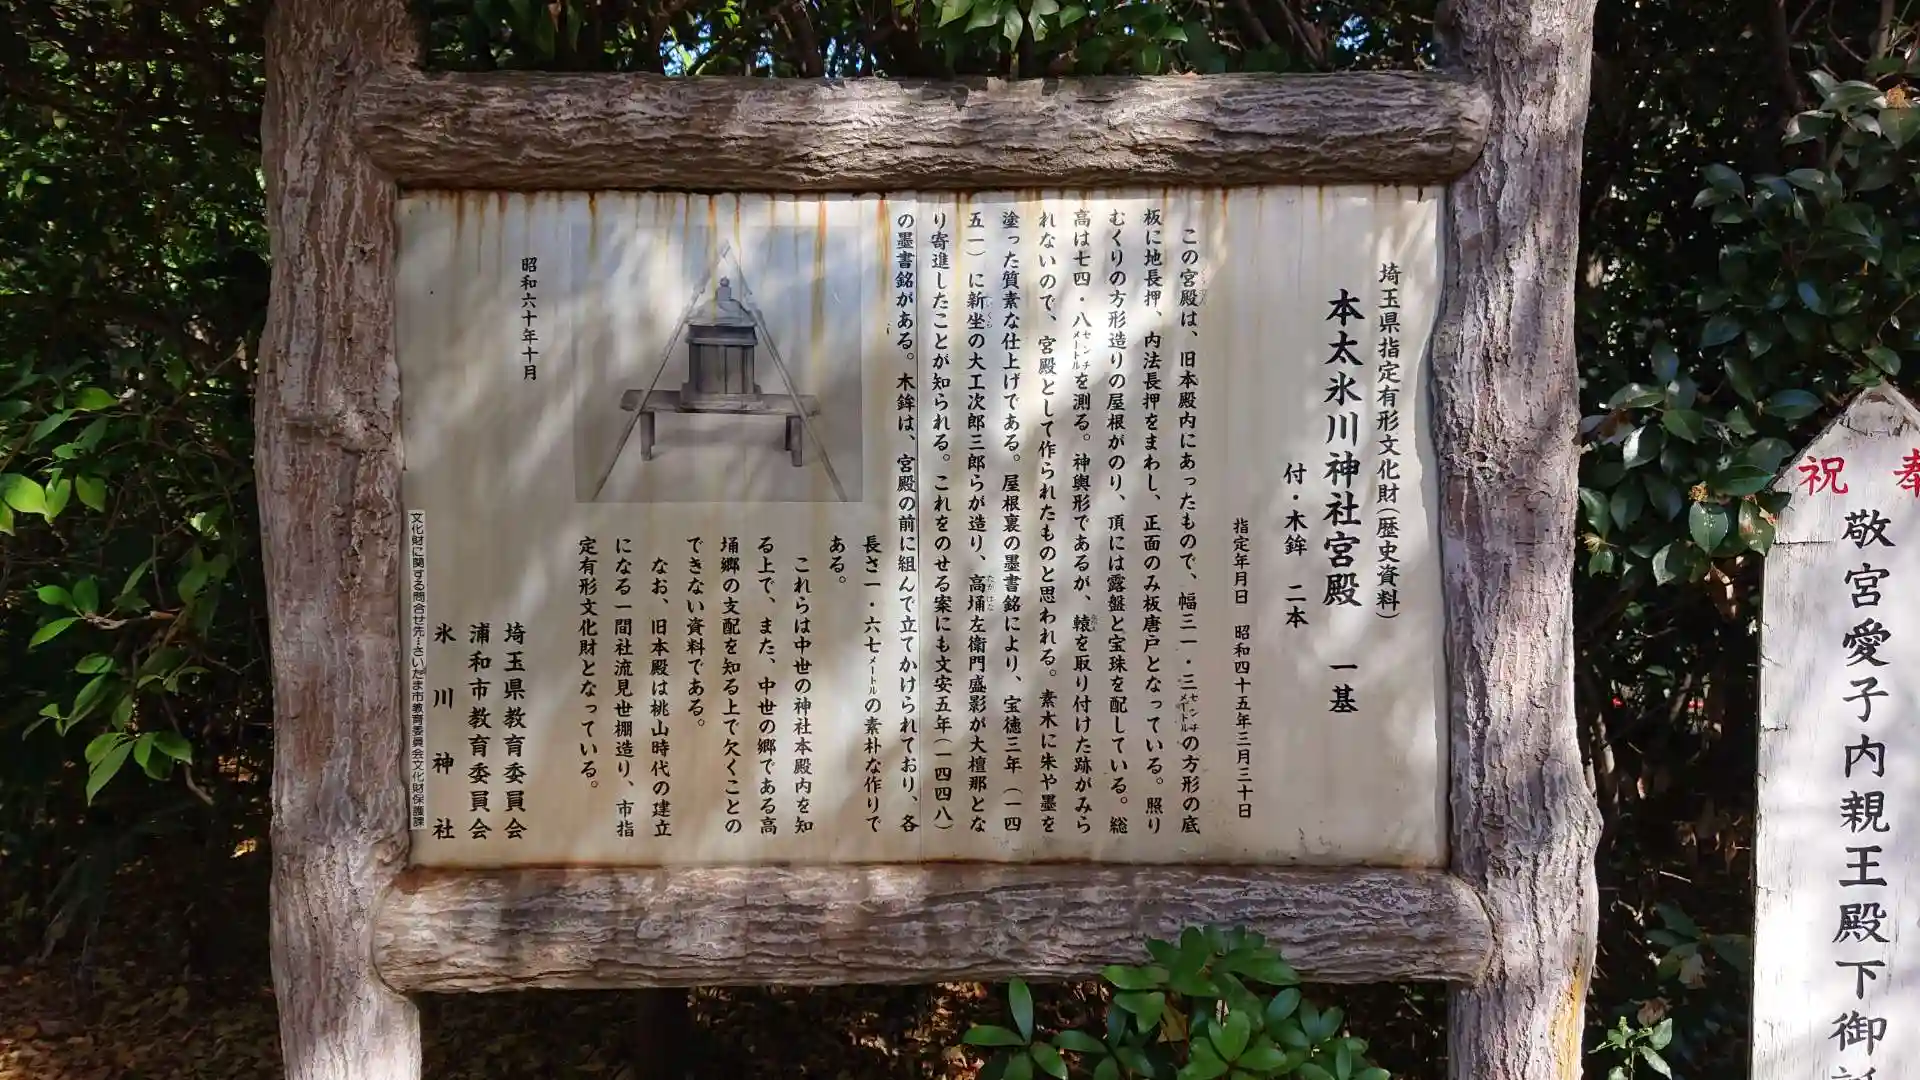 埼玉県指定有形文化財(歴史資料)
本太氷川神社宮殿 一基
付・木鉾 二本
指定年月日 昭和四十五年三月三十日
この宮殿は、旧本殿内にあったもので、幅三一・三センチメートルの方形の底
板に地長押、内法長押をまわし、正面のみ板唐戸となっている。照り
むくりの方形造りの屋根がのり、頂には露盤と宝珠を配している。総
高は七四・八センチメートルを測る。神輿形であるが、轅を取り付けた跡がみら
れないので、宮殿として作られたものと思われる。素木に朱や墨を
塗った質素な仕上げである。屋根裏の墨書銘により、宝徳三年(一四
五一)に新坐の大工次郎三郎らが造り、高埇左衛門盛影が大檀那とな
り寄進したことが知られる。これをのせる案にも文安五年(一四四八)
の墨書銘がある。木鉾は、宮殿の前に組んで立てかけられており、各
長さ一・六七メートルの素朴な作りで
ある。
これらは中世の神社本殿内を知
る上で、また、中世の郷である高
埇郷の支配を知る上で欠くことの
できない資料である。
なお、旧本殿は桃山時代の建立
になる一間社流見世棚造り、市指
定有形文化財となっている。
昭和六十年十月
埼玉県教育委員会
浦和市教育委員会
氷川神社
文化財に関する問合せ先…さいたま市教育委員会文化財保護課
奉
祝
敬宮愛子内親王殿下御